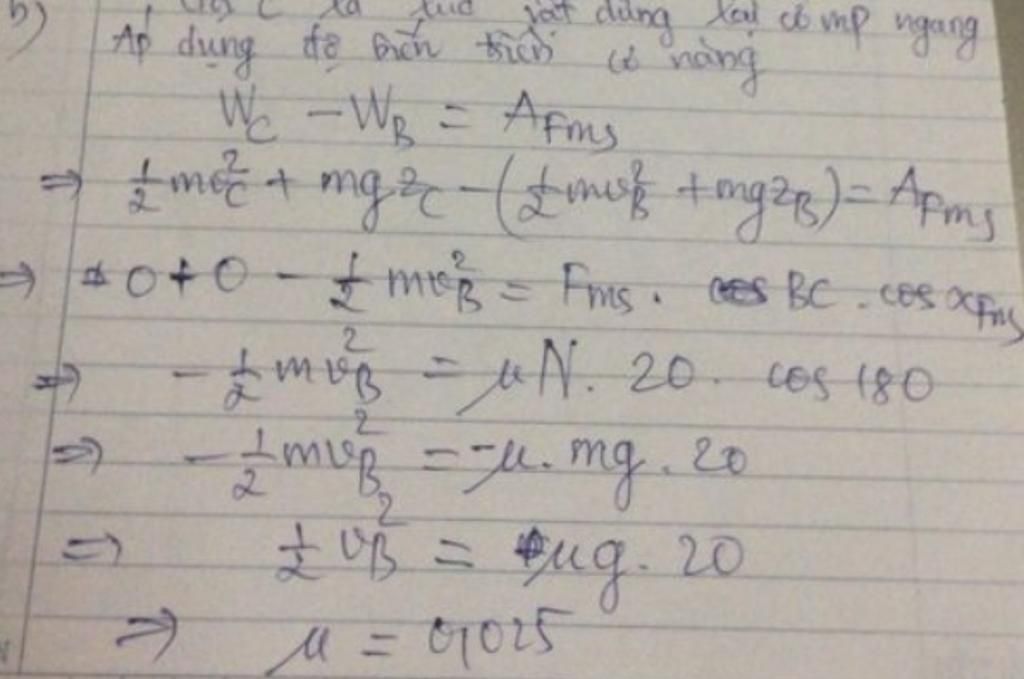 b) Gọi C là lúc vật dừng lại có mp ngang
Áp dụng độ biến thiên cơ năng
W_C - W_B = A_Fms
=> 1/2 mv²_C + mgz_C - (1/2 mv²_B + mgz_B) = A_Fms
=> 0 + 0 - 1/2 mv²_B = Fms . BC . cos α_Fms
=> - 1/2 mv²_B = μN. 20. cos 180
=> - 1/2 mv²_B = -μ. mg. 20
=> 1/2 v²_B = μg. 20
=> μ = 0,025